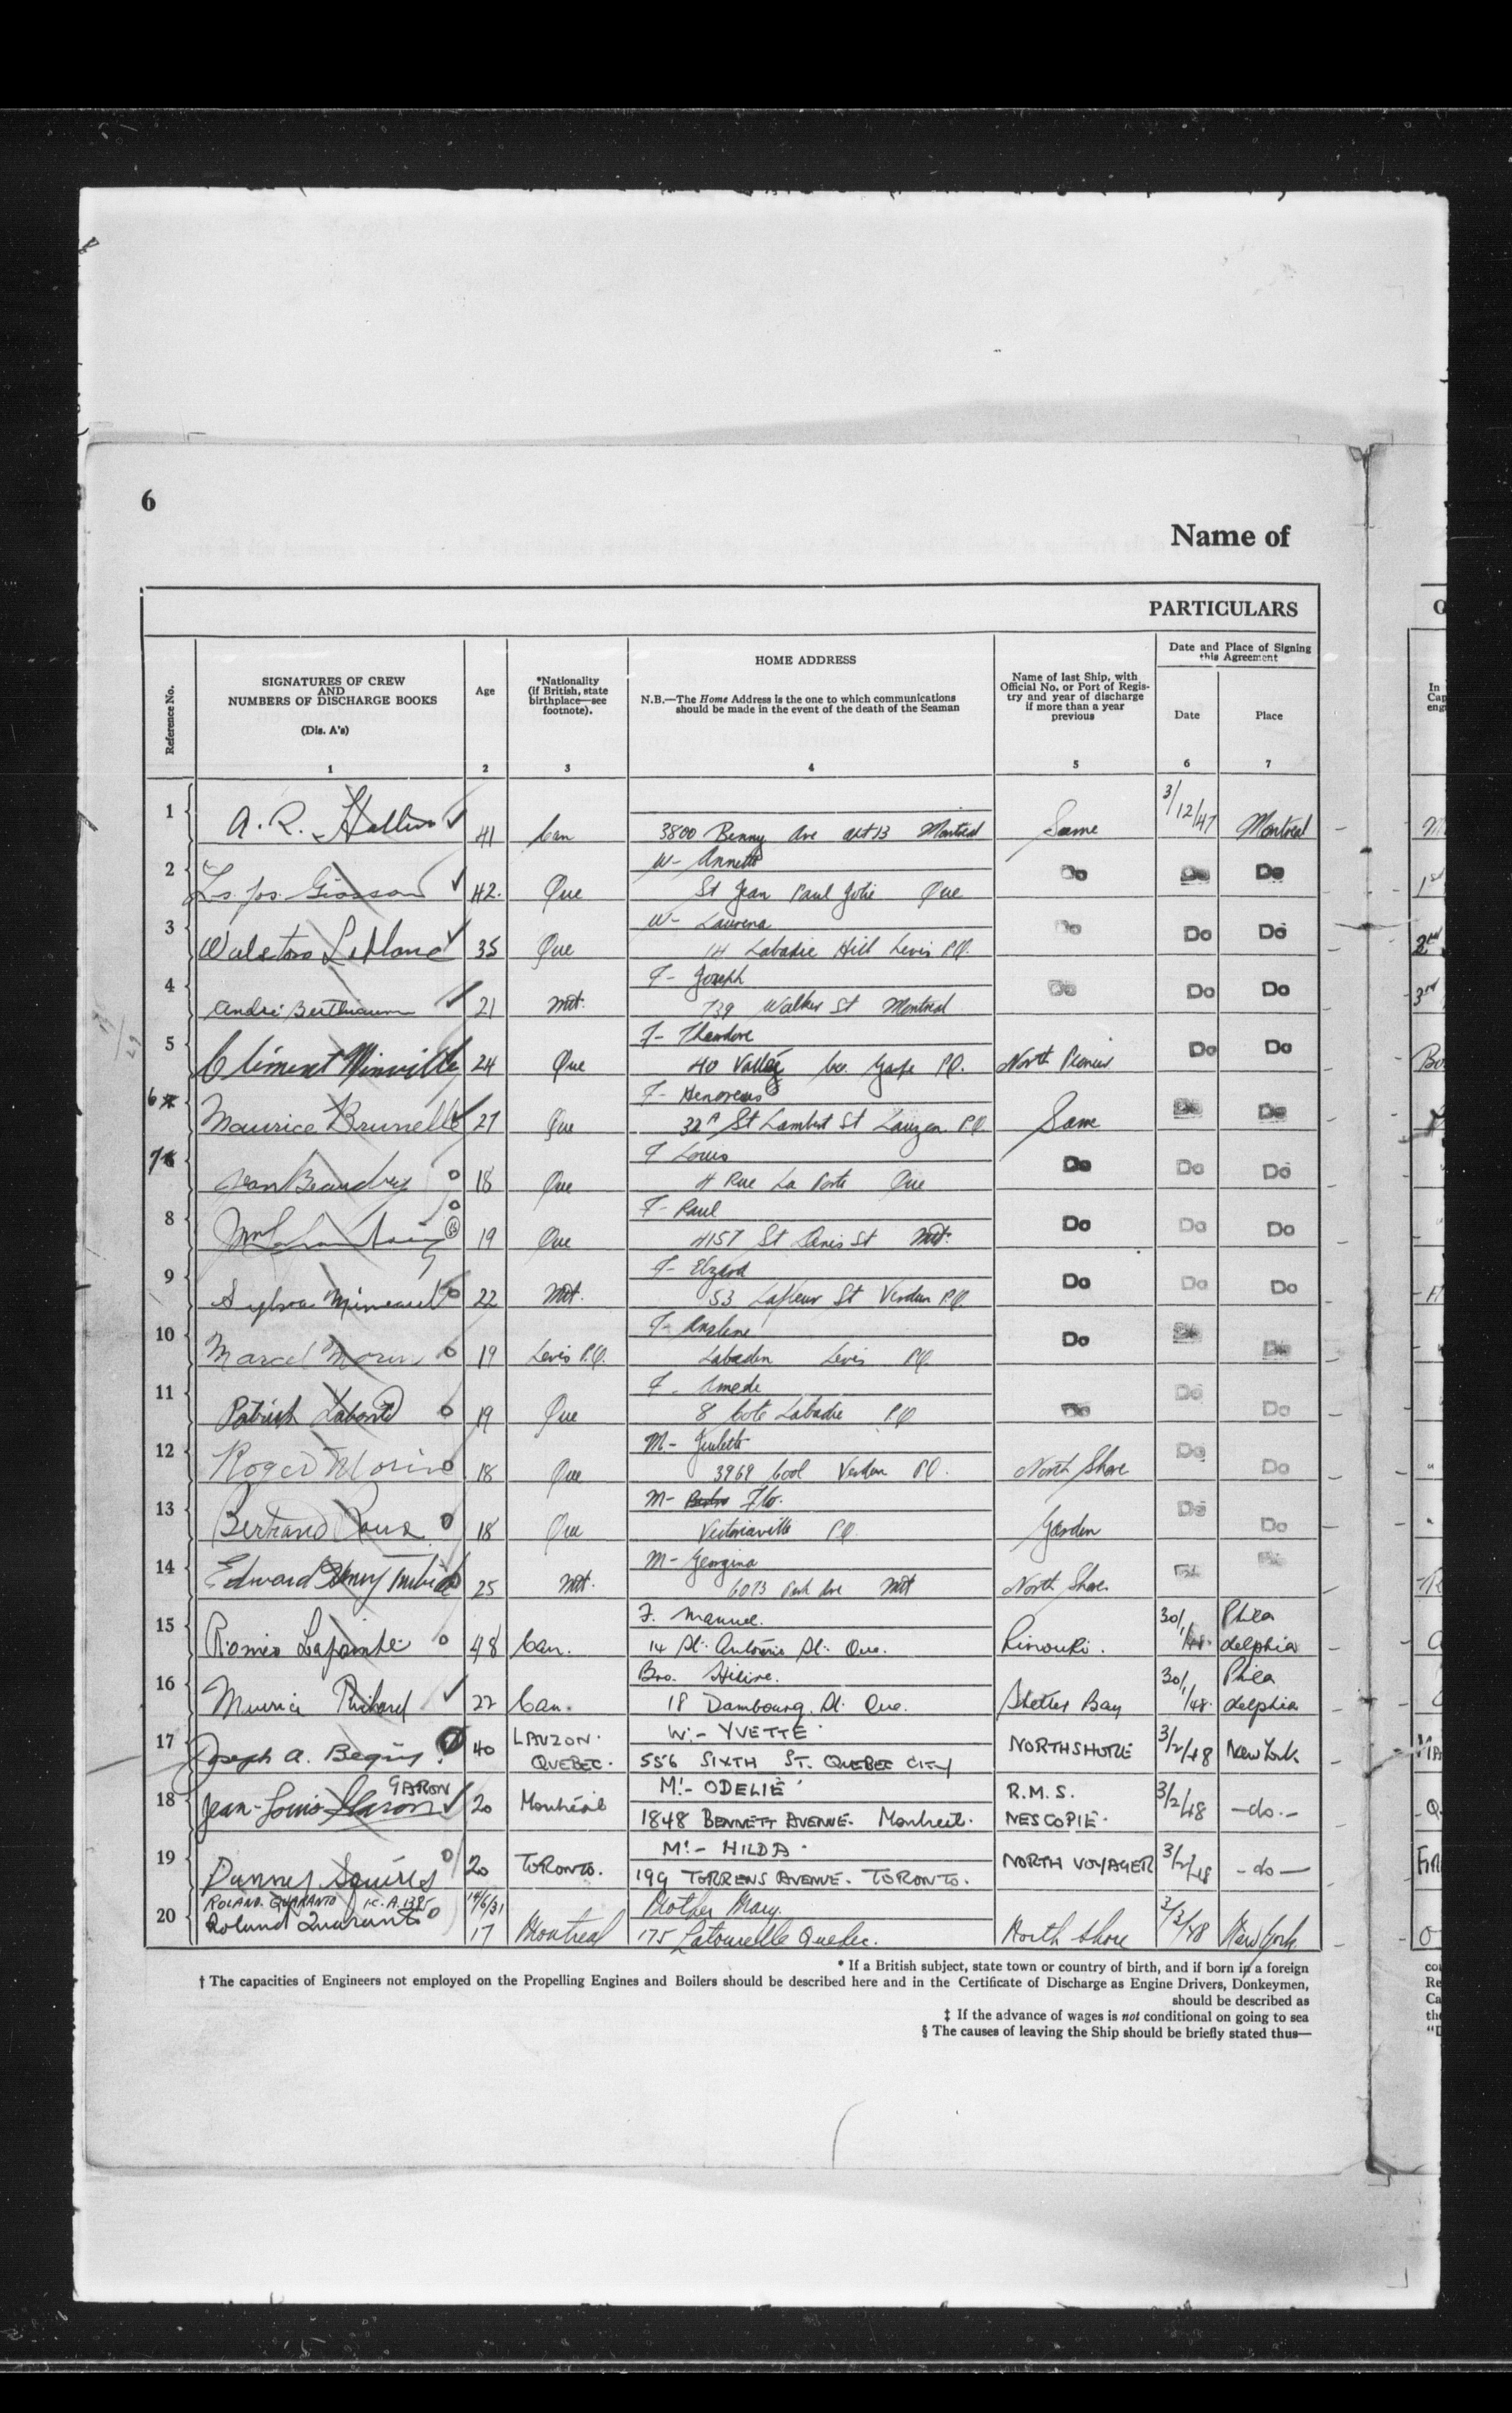 6
Name of
PARTICULARS
Reference No.
SIGNATURES OF CREW
AND
NUMBERS OF DISCHARGE BOOKS
(Dis. A's)
1
Age
2
*Nationality
(if British, state
birthplace—see
footnote).
3
HOME ADDRESS
N.B.—The Home Address is the one to which communications
should be made in the event of the death of the Seaman
4
Name of last Ship, with
Official No. or Port of Regis-
try and year of discharge
if more than a year
previous
5
Date and Place of Signing
this Agreement
Date
6
Place
7
1 A. R. 41 Can 3800 Benny Ave apt 13 Montreal Same 3/12/47 Montreal
W- Annette
2 Ls. Jos. Giasson 42. Que St Jean Paul Jolie Que Do Do Do
W- Laurena
3 35 Que 14 Labadie Hill Levis P.Q. Do Do Do
F- Joseph
4 André Berthiaume 21 Mtl. 739 Walker St Montreal Do Do Do
F- Theodore
5 Clément Minville 24 Que 40 Co. Gaspe P.Q. North Pioneer Do Do
F-
6 Maurice Brunelle 27 Que 32A St Lambert St Lauzon P.Q. Same Do Do
F Louis
7 Beaudry 18 Que 4 Rue La Porte Que Do Do Do
F- Paul
8 19 Que 4157 St Denis St Mtl. Do Do Do
F- Elzard
9 Sylva Mineault 22 Mtl. 53 Lafleur St Verdun P.Q. Do Do Do
F-
10 Marcel Morin 19 Levis P.Q. Levis P.Q. Do Do Do
F. Amede
11 Labonté 19 Que 8 Cote Labadie P.Q. Do Do Do
M-
12 Roger Morin 18 Que 3969 Verdun P.Q. North Shore Do Do
M- Flo.
13 Bertrand 18 Que Victoriaville P.Q. Do Do
M- Georgina
14 Edward Henry 25 Mtl. 6073 Park Ave Mtl North Shore Do Do
F. Manuel.
15 Romeo Lapointe 48 Can. 14 St. Antoine St. Que. Rimouski. 30/1/48. Philadelphia
Bro.
16 Richard 22 Can. 18 Dambourg. St. Que. Shelter Bay 30/1/48. Philadelphia
W.- YVETTE
17 Joseph A. Begin 40 LAUZON. QUEBEC. 556 SIXTH ST. QUEBEC CITY NORTHSHORE 3/2/48 New York
GARON M.- ODELIE
18 Jean-Louis Garon 20 Montréal 1848 BENNETT AVENUE. Montreal. R.M.S. NESCOPIE. 3/2/48 -do.-
M.- HILDA
19 Squires 20 TORONTO. 199 TORRENS AVENUE. TORONTO. NORTH VOYAGER 3/2/48 -do-
ROLAND. QUARANTO 14/6/31 Mother Mary.
20 Roland Quaranto 17 Montreal 175 Latourelle Quebec. North Shore 3/2/48 New York
* If a British subject, state town or country of birth, and if born in a foreign
† The capacities of Engineers not employed on the Propelling Engines and Boilers should be described here and in the Certificate of Discharge as Engine Drivers, Donkeymen,
should be described as
‡ If the advance of wages is not conditional on going to sea
§ The causes of leaving the Ship should be briefly stated thus—